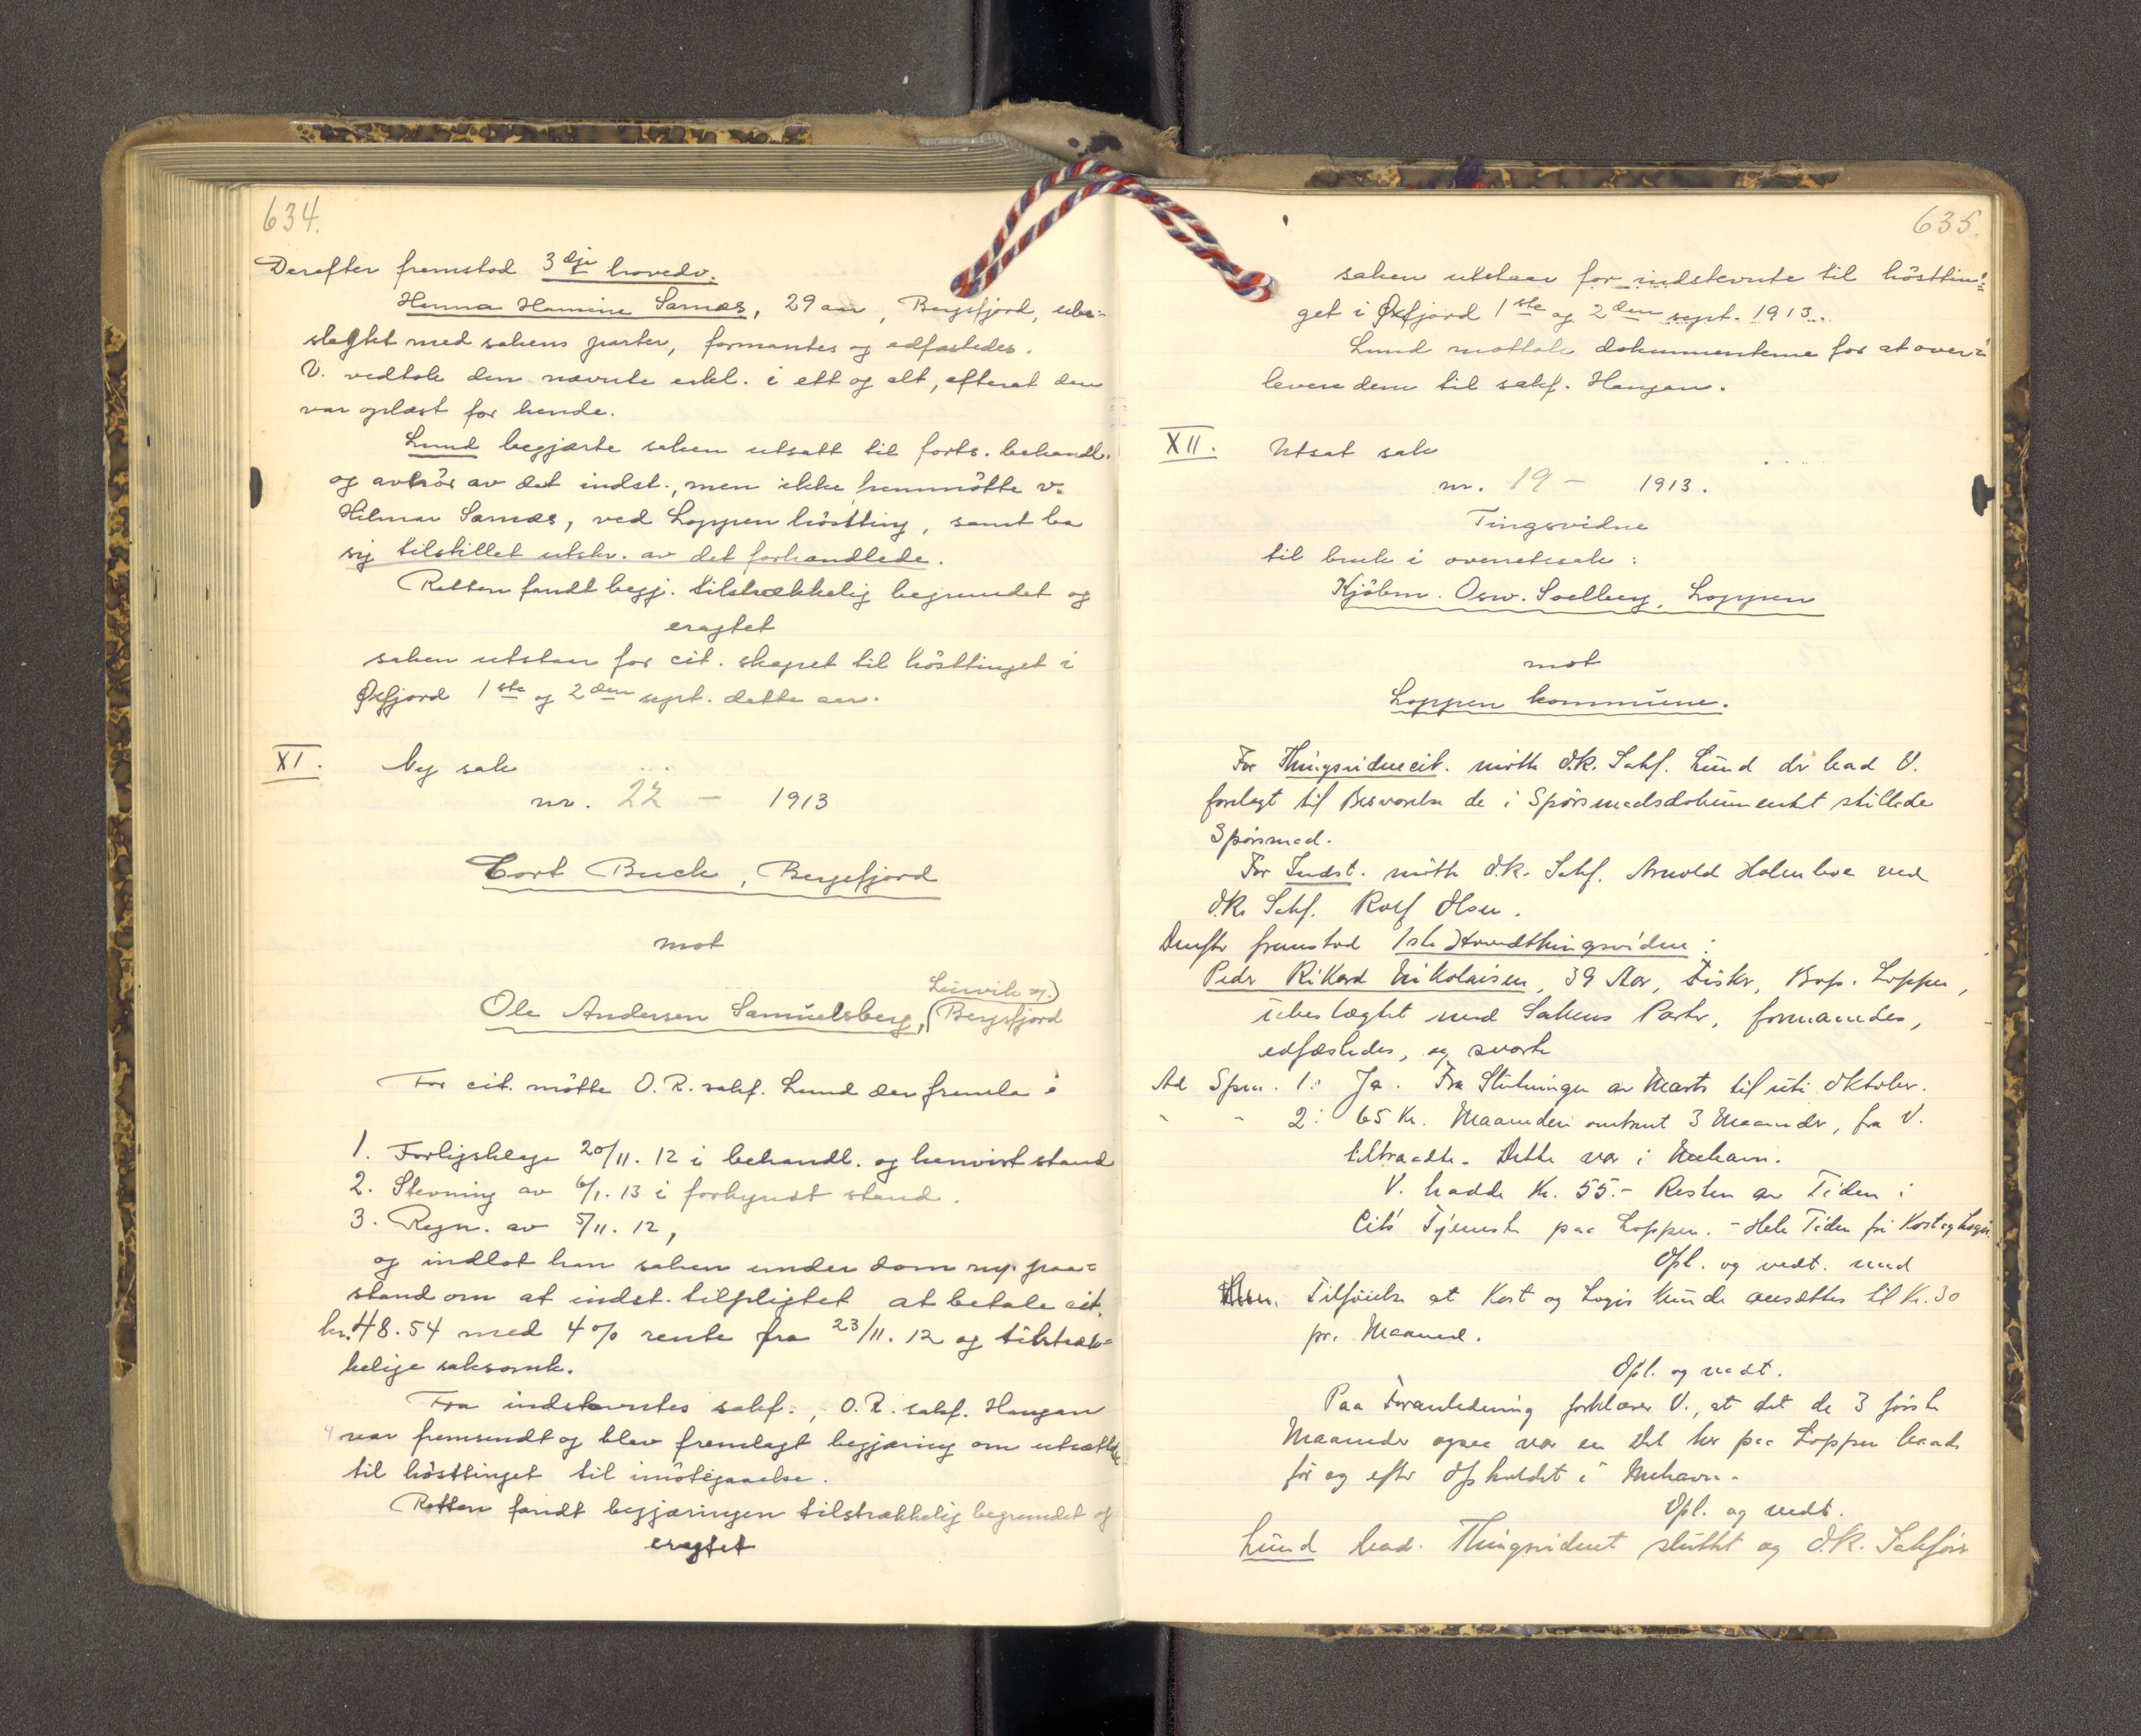 634.
Derefter fremstod 3dje hovedv.
Hanna Hansine Sarnæs, 29 aar, Bergsfjord, ube=
slegtet med sakens parter, formantes og edfæstedes.
V. vedtok den nævnte erkl. i ett og alt, efterat den
var oplæst for hende.
Lund begjærte saken utsatt til forts. behandl.
og avhör av det indst., men ikke fremmötte v.
Hilmar Sarnæs, ved Loppen höstting, samt ba
sig tilstillet utskr. av det forhandlede.
Retten fandt begj. tilstrækkelig begrundet og
eragtet
saken utstaar for cit. skapet til hösttinget i
Øxfjord 1ste og 2den sept. dette aar.
XI. Ny sak
nr. 22 - 1913
Cort Buck, Bergsfjord
mot
Ole Andersen Samuelsberg, (Bergsfjord
For cit. mötte O.R. sakf. Lund der fremla:
1. Forligsklage 20/11. 12 i behandl. og henvist stand
2. Stevning av 6/1. 13 i forkyndt stand.
3. Regn. av 5/11. 12,
og indlot han saken under dom m. paa=
stand om at indst. tilpligtet at betale cit.
kr. 48.54 med 4% rente fra 23/11. 12 og tilstræk=
kelige saksomk.
Fra indstevntes sakf., O.R. sakf. Haugan
var fremsendt og blev fremlagt begjæring om utsættelse
til hösttinget til imötegaaelse.
Retten fandt begjæringen tilstrækkelig begrundet og
eragtet
635.
saken utstaar for indstevnte til hösttin=
get i Øxfjord 1ste og 2den sept. 1913.
Lund mottok dokumenterne for at over=
levere dem til sakf. Haugan.
XII. Utsat sak
nr. 19 - 1913.
Tingsvidne
til bruk i overretssak:
Kjöbm. Osw. Soelberg, Loppen
mot
Loppen kommune.
For Thingsvidnecit. mötte O.R. Sakf. Lund der bad V.
forelagt til Besvarelse de i Spörsmaalsdokumentet stillede
Spörsmaal.
For Indst. mötte O.R. Sakf. Arnold Holmboe ved
O.R. Sakf. Rolf Olsen.
Derefter fremstod 1ste Hovedthingsvidne:
Peder Rikard Nikolaisen, 39 Aar, Fisker, Bop. Loppen,
ubeslægtet med Sakens Parter, formanedes,
edfæstedes, og svarte
Ad Spm. 1: Ja. Fra Slutningen av Marts til uti Oktober.
" " 2: 65 Kr. Maaneden omtrent 3 Maaneder, fra V.
tiltraadte. Dette var i Mehavn.
V. hadde Kr. 55.- Resten av Tiden i
Cit's Tjeneste paa Loppen. - Hele Tiden fri Kost og Logis.
Opl. og vedt. med
Tilföielse at Kost og Logis kunde ansættes til Kr. 30
pr. Maaned.
Opl. og vedt.
Paa Foranledning forklarer V., at det de 3 förste
Maaneder ogsaa var en Del her paa Loppen baade
för og efter Opholdet i Mehavn.
Opl. og vedt.
Lund bad Thingsvidnet sluttet og O.R. Sakförer